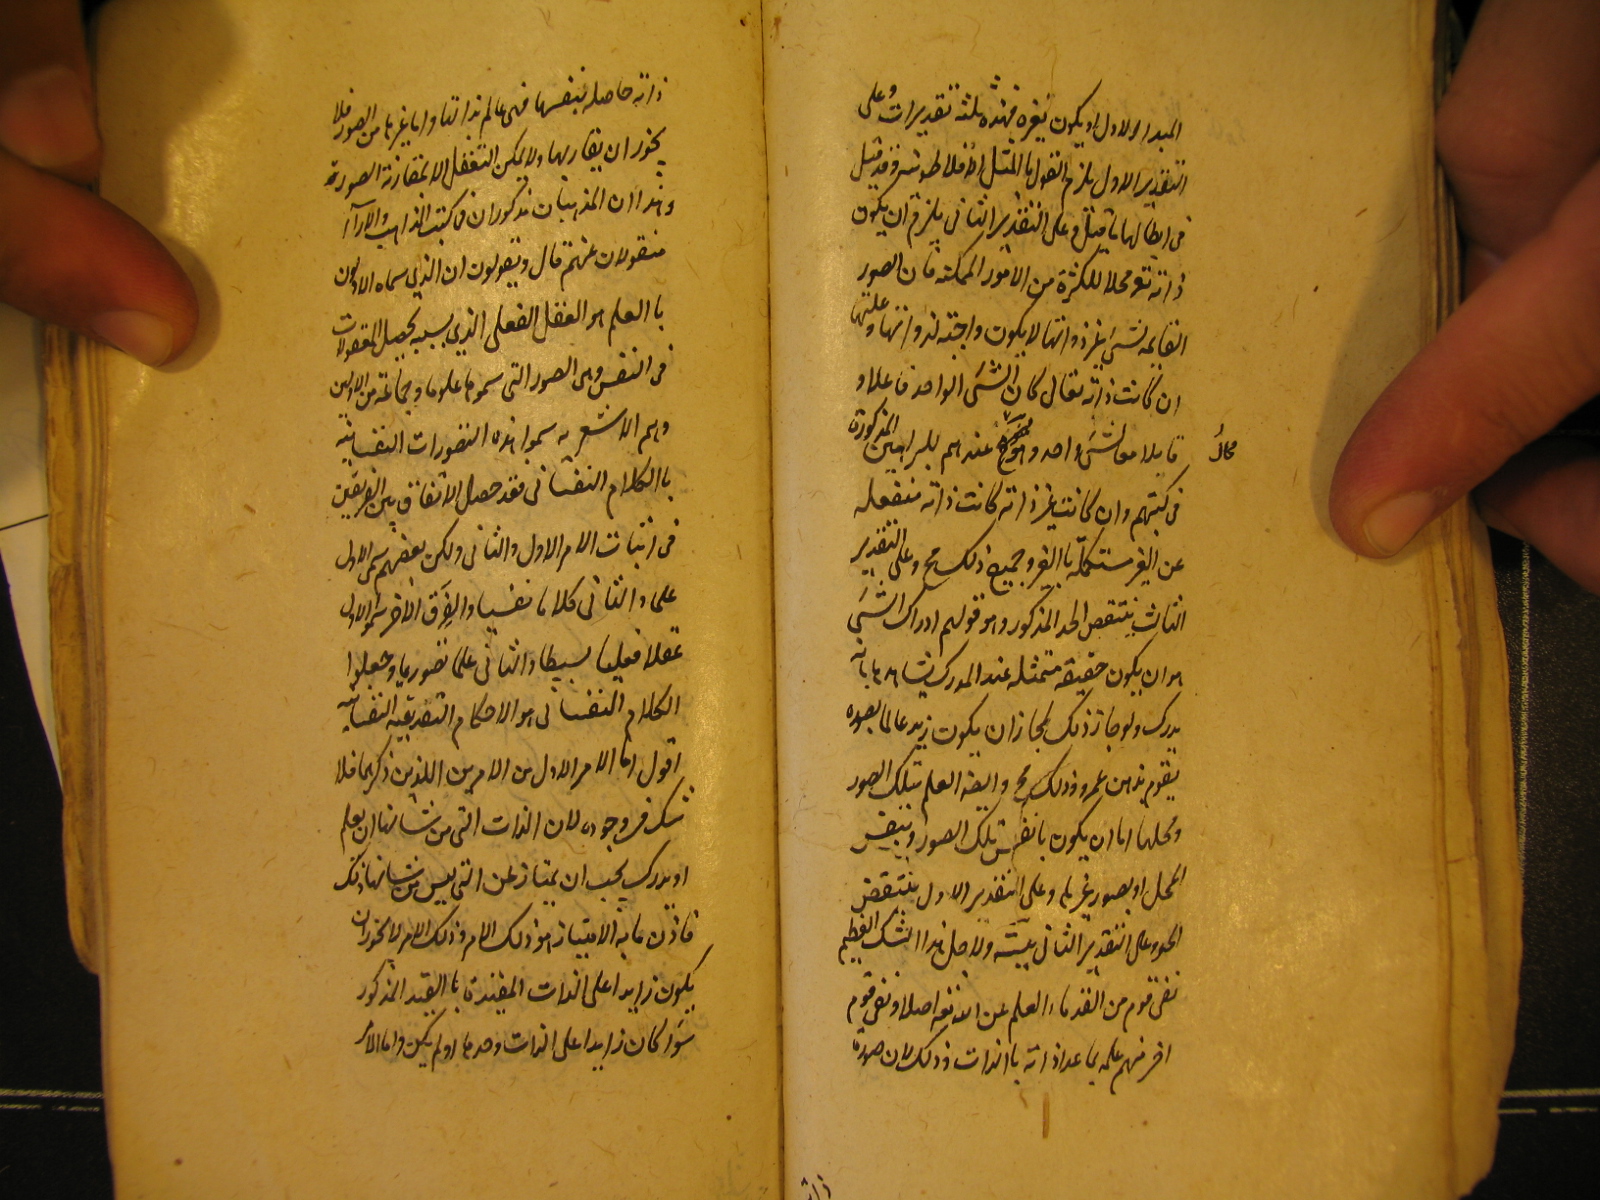 المبداء الاول او يكون بغيره فهذه ثلثة تقديرات وعلى
التقدير الاول يلزم القول بالمثل الافلاطونيه وقد قيل
فى ابطالها ما قيل وعلى التقدير الثانى يلزم ان يكون
ذاته تع محلا للكثرة من الامور الممكنه فان الصور
القايمه بشئ غير ذواتها لا يكون واجبته لذواتها وعلتها
ان كانت ذاته تعالى كان الشئ الواحد فاعلا و
قابلا معا لشئ واحد وهو مح عندهم للبراهين المذكورة
محال
فى كتبهم وان كانت غير ذاته كانت ذاته منفعله
عن الغير مستكملة بالغير وجميع ذلك مح وعلى التقدير
الثالث ينتقص الحد المذكور وهو قولهم ادراك الشئ
هو ان يكون حقيقه متمثله عند المدرك يشاهدها ما به
يدرك ولو جاز ذلك لجاز ان يكون زيد عالما بصوره
يقوم بذهن عمرو وذلك مح وايضا العلم بتلك الصور
ومحلها اما ان يكون بانفس تلك الصور وبنفس
المحل او بصور غيرها وعلى التقدير الاول ينتقض
الحد وعلى التقدير الثانى يتسـ ولاجل هذا الشك العظيم
نفى قوم من القدماء العلم عن الله تعه اصلا ونفى قوم
اخر منهم علمه بما عدا ذاته بالذات وذلك لان صورة
ذاته
ذاته حاصله بنفسها فهى عالم بذاتها واما غيرها من الصور فلا
يجوز ان يقارنها ولا يمكن التعقل الا بمقارنة الصورة
وهذان المذهبان مذكوران فى كتب المذاهب والاراآ
منقولان عنهم قال ويقولون ان الذى سماه الاولون
بالعلم هو العقل الفعلى الذى بسببه يحصل المعقولات
فى النفس وهى الصور التى سموها علوما وجماعة من الاولين
وهم الاشعريه سموا هذه التصورات النفسانيه
بالكلام النفسانى فقد حصل الاتفاق بين الفريقين
فى اثبات الامر الاول والثانى ولكن بعضهم سمى الاول
علما والثانى كلاما نفسيا والفرق الاخر سموا الاول
عقلا فعليا بسيطا والثانى علما تصوريا وجعلوا
الكلام النفسانى هو الاحكام التصديقيه النفسانيه
اقول اما الامر الاول من الامرين اللذين ذكرهما فلا
شك فى وجوده لان الذات التى من شانها ان يعلم
او يدرك يجب ان يمتاز عن التى ليس من شانها ذلك
فاذن ما به الامتياز هو ذلك الامر وذلك الامر لا يجوز ان
يكون زايدا على الذات المقيدة بالقيد المذكور
سواء كان زايدا على الذات وحدها او لم يكن واما الامر